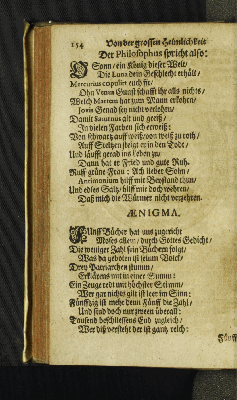 154 Von der grossen Heimlichkeit
Der Philosophus spricht also:
O Sonn / ein König dieser Welt /
Die Luna dein Geschlecht erhält /
Mercurius copuliert euch fix /
Ohn Venus Gunst schafft ihr alls nichts /
Welch Martem hat zum Mann erkohrn /
Jovis Genad sey nicht verlohrn /
Damit Saturnus alt und greiß /
In vielen Farben sich erweiß:
Von schwartz auff weiß / von weiß zu roth /
Auff Steltzen steigt er in den Todt /
Und läufft gerad ins Leben zu,
Dann hat er Fried und gute Ruh.
Ruff grüne Frau: Ach lieber Sohn /
Antimonium hilff mit Verstand thun /
Und edles Saltz / hilff mir doch wehren /
Daß mich die Würmer nicht verzehren.
ÆNIGMA.
Fünff Bücher hat uns zugericht
Moses allein / durch Gottes Gedicht /
Die weniger Zahl sein Büchern folgt /
Was da geboten ist seim Volck /
Drey Patriarchen stumm /
Erklären uns in einer Summ:
Ein Zeuge redt und höchster Stimm /
Wer gar nichts gilt ist leer im Sinn:
Fünfftzig ist mehr denn Fünff die Zahl /
Und sind doch nur zween überall:
Tausend beschliessens End zugleich /
Wer diß versteht der ist gantz reich:
Fünff